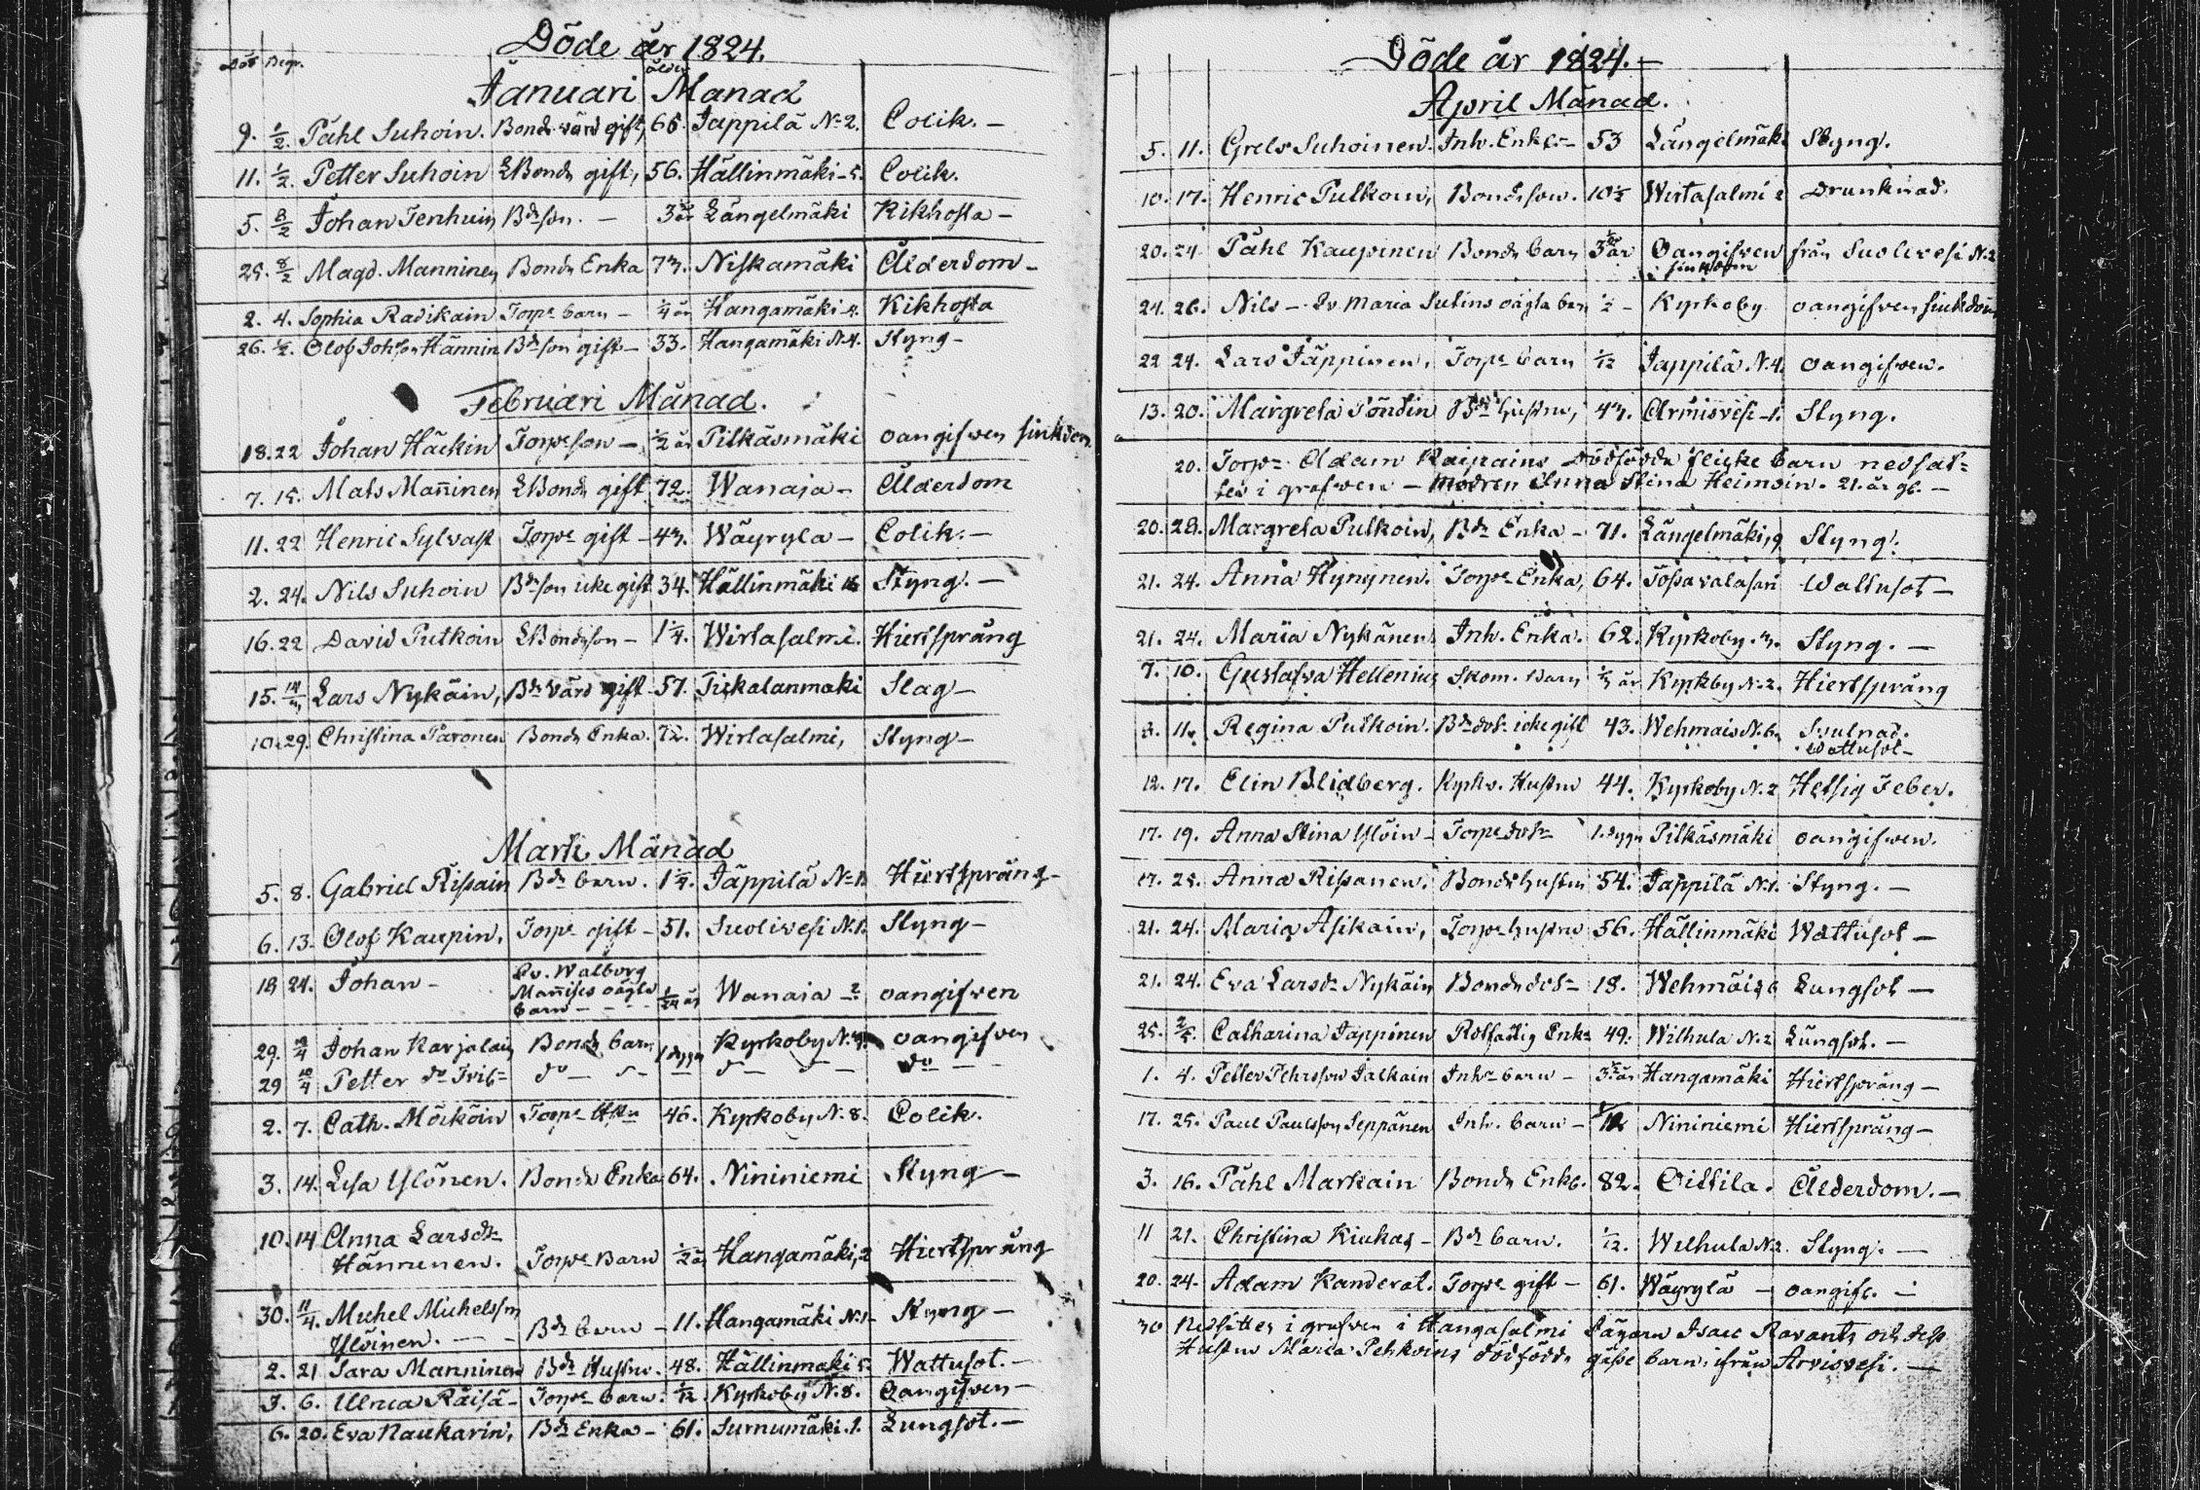 Döde år 1824.
Död Begr. ålder
Januari Månad
9. 1/2. Påhl Suhoin. Bonde värd gift, 65. Jäppilä No 2. Colik. –
11. 1/2. Petter Suhoin EBonde gift, 56. Hällinmäki – 5. Colik.
5. 8/2 Johan Tenhuin Bdeson. – 3 år Längelmäki Kikhosta –
25. 8/2 Magd. Manninen Bonde Enka 73. Niskamäki Ålderdom –
2. 4. Sophia Radikain Torpe barn – 1/4 år Hangamäki 4. Kikhosta
26. 1/2. Olof Johsson Hännin Bdeson gift – 33. Hangamäki N.4. Styng –
Februari Månad.
18. 22 Johan Häckin Torpeson – 1/2 år Pilkäsmäki oangifven sinkdom
7. 15. Mats Mañinen EBonde gift 72. Wanaja – Ålderdom
11. 22 Henric Sylvast Torpe gift – 43. Wäyrylä – Colik. –
2. 24. Nils Suhoin Bdeson icke gift 34. Hällinmäki 16 Styng. –
16. 22 David Putkoin EBondeson – 1 1/4. Wirtasalmi. Hiertsprång
15. 14/3 Lars Nykäin, Bde värd gift 57. Tiikalanmäki Slag –
10. 29. Christina Paronen Bonde Enka. 72. Wirtasalmi, Styng –
Marti Månad
5. 8. Gabriel Rissain Bde barn. 1 1/4. Jäppilä No 1. Hiertsprång –
6. 13. Olof Kaupin. Torpe gift – 51. Suolivesi N.1. Styng –
18 24. Johan – Qv. Walborg
Mañises oägta 1/24 år Wanaia 2 oangifven
barn –
29. 10/4 Johan Karjalain Bonde barn 1 dygn Kyrkoby N.3. oangifven
29 10/4 Petter do Tvil= do – do – do – do –
2. 7. Cath. Möiköin Torpe Hstu 46. Kyrkoby N. 8. Colik.
3. 14. Lisa Ylönen. Bonde Enka 64. Nininiemi Styng –
10. 14 Anna Larsdr
Hännunen. Torpe Barn 1/2 år Hangamäki, 2 Hiertsprång
30. 11/4. Michel Michelsson
Ylöinen. – Bde barn – 11. Hangamäki N.1. Styng –
2. 21 Sara Manninen Bde Hustru. 48. Hällinmäki 5. Wattusot. –
3. 6. Ulrica Räisä – Torpe barn. 1/12 Kyrkoby N.8. Oangifven –
6. 20. Eva Naukarin, Bde Enka – 61. Surnumäki. 1. Lungsot. –
Döde år 1824. –
April Månad.
5. 11. Grels Suhoinen. Inh. Enkl. – 53 Längelmäki Styng.
10. 17. Henric Pulkoin, Bondeson. 10 1/2 Wirtasalmi 2 Drunknad.
20. 24 Påhl Kaupinen Bonde barn 3 1/2 år Oangifven från Suolivesi N.2
sinkdom
24. 26. Nils – Qv Maria Sutins oägta barn 1/2 – Kyrkoby oangifven sinkdom
22 24. Lars Jäppinen, Torpe barn 1/12 Jäppilä N.4. oangifven.
13. 20. Margreta Pöndin Bde hustru, 43. Armisvesi – 1. Styng.
20. Torpe Adam Raipains Dödfödda flicke barn nedsat=
tes i grafven – Modren Anna Stina Heimoin. 21. år gl. –
20. 28. Margreta Pulkoin, Bde Enka – 71. Längelmäki, 9 Styng.
21. 24. Anna Hynynen. Torpe Enka, 64. Tossavalasari Wattusot –
21. 24. Maria Nykänen Inh. Enka. 62. Kyrkoby. 3. Styng. –
7. 10. Gustafva Hellenius Skom. Barn 1/3 år Kyrkby N.2. Hiertsprång
3. 11. Regina Putkoin. Bde dotr icke gift 43. Wehmais N.6. Svulnad.
Wattusot –
12. 17. Elin Blidberg. Kyrkv. Hustru 44. Kyrkoby N.2 Hetsig Feber.
17. 19. Anna Stina Ylöin – Torpe dotr 1. dygn Pilkäsmäki oangifven.
17. 25. Anna Rissanen. Bonde hustru 54. Jäppilä N.1. Styng. –
21. 24. Maria Asikain, Torpe hustru 56. Hällinmäki Wattusot –
21. 24. Eva Larsdr Nykäin Bondedotr 18. Wehmais 6 Lungsot –
25. 2/5. Catharina Jäppinen Rotfattig Enka 49. Wilhula N.2 Lungsot. –
1. 4. Petter Pehrsson Jalkain Inhe barn – 3 1/2 år Hangamäki Hiertsprång –
17. 25. Paul Paulsson Seppänen Inh. barn – 1/12 Nininiemi Hiertsprång –
3. 16. Påhl Markain Bonde Enkl. 82. Oittila. Ålderdom. –
11 21. Christina Kiukas – Bde barn. 1/12. Wilhula N.2. Styng. –
20. 24. Adam Kanderat. Torpe gift – 61. Wäyrylä – oangifv. –
30 Nedsattes i grafven i Hangasalmi Jägarn Isac Ravants och dess
Hustru Maria Pehkoins dödfödde gåsse barn, ifrån Arvisvesi. –